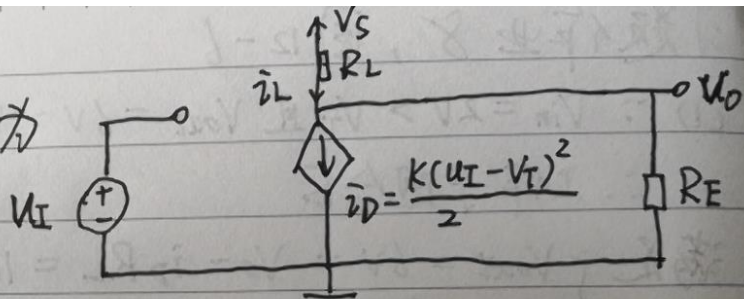 V_S
R_L
i_L
为
u_O
u_I
+
-
i_D = K(u_I - V_T)^2 / 2
R_E